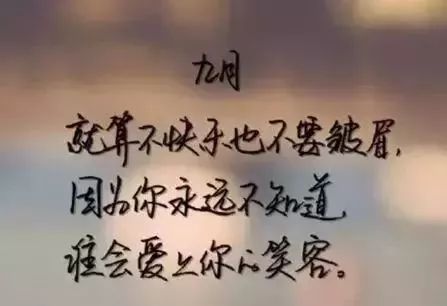 九月
就算不快乐也不要皱眉，
因为你永远不知道，
谁会爱上你的笑容。